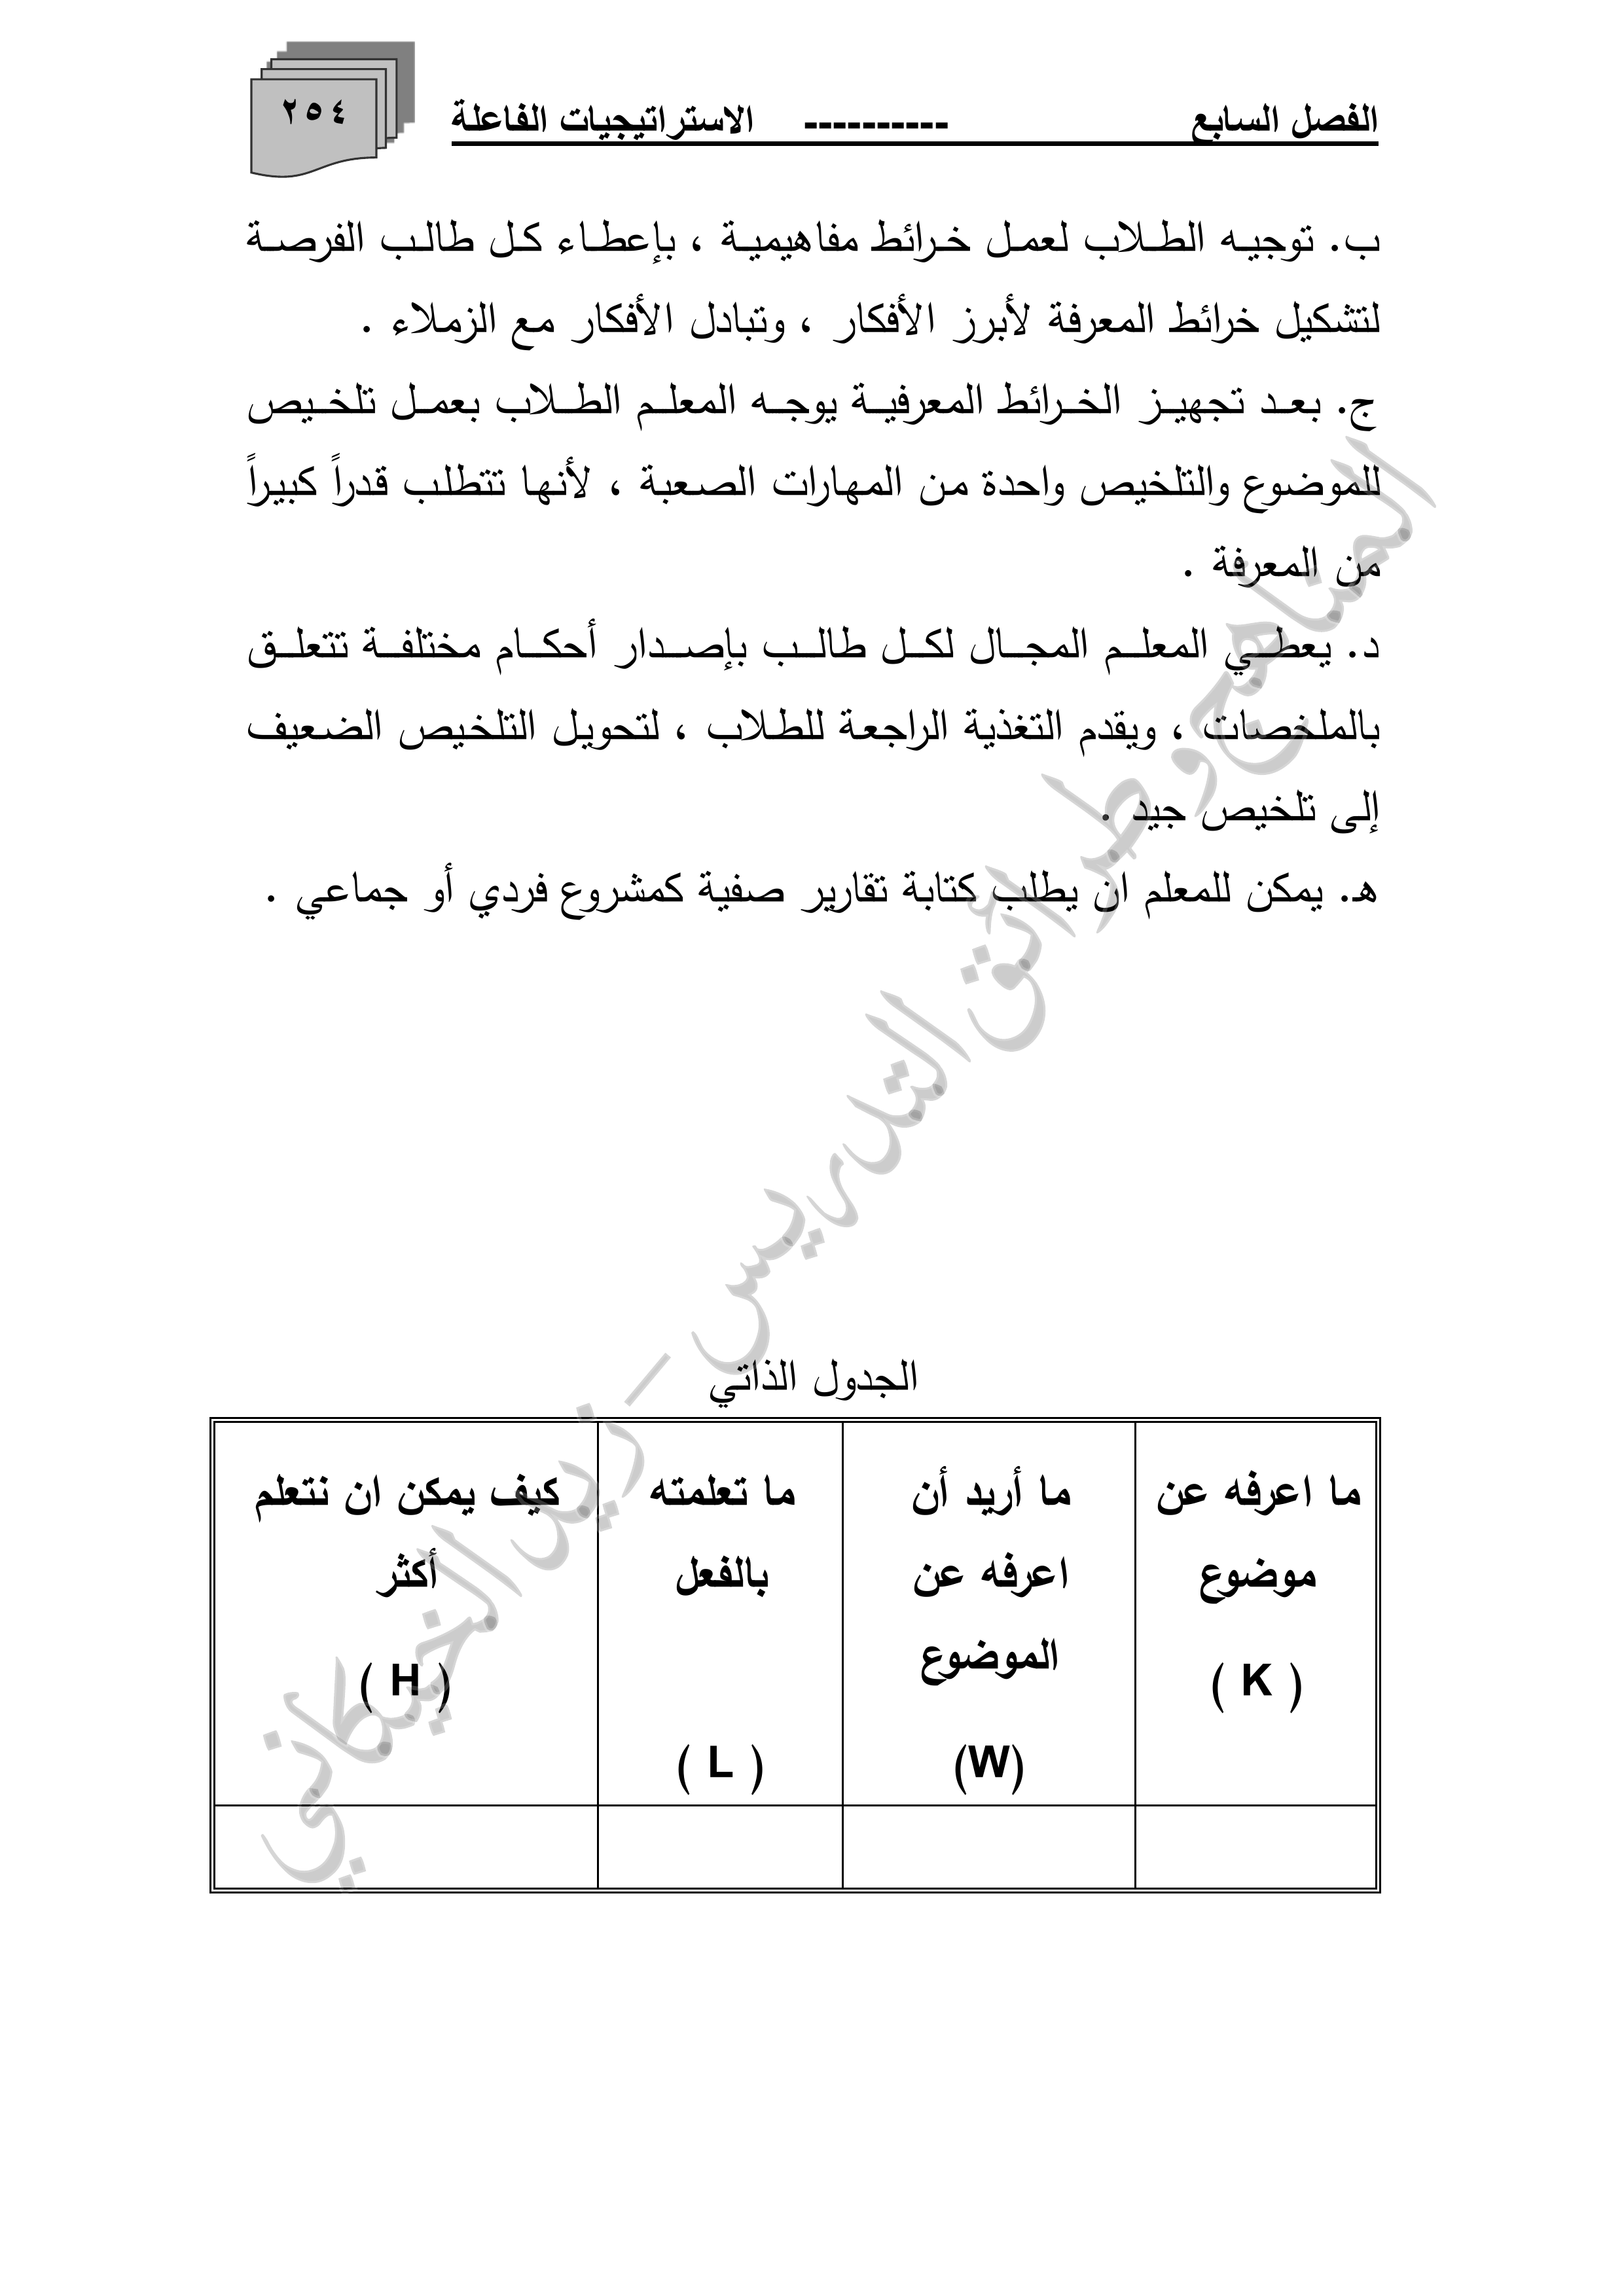 الفصل السابع ---------- الاستراتيجيات الفاعلة
٢٥٤
ب. توجيه الطلاب لعمل خرائط مفاهيمية ، بإعطاء كل طالب الفرصة
لتشكيل خرائط المعرفة لأبرز الأفكار ، وتبادل الأفكار مع الزملاء .
ج. بعد تجهيز الخرائط المعرفية يوجه المعلم الطلاب بعمل تلخيص
للموضوع والتلخيص واحدة من المهارات الصعبة ، لأنها تتطلب قدراً كبيراً
من المعرفة .
د. يعطي المعلم المجال لكل طالب بإصدار أحكام مختلفة تتعلق
بالملخصات ، ويقدم التغذية الراجعة للطلاب ، لتحويل التلخيص الضعيف
إلى تلخيص جيد .
هـ. يمكن للمعلم ان يطلب كتابة تقارير صفية كمشروع فردي أو جماعي .
الجدول الذاتي
ما اعرفه عن
موضوع
( K )
ما أريد أن
اعرفه عن
الموضوع
(W)
ما تعلمته
بالفعل
( L )
كيف يمكن ان نتعلم
أكثر
( H )
المناهج وطرائق التدريس - زيد الخيكاني